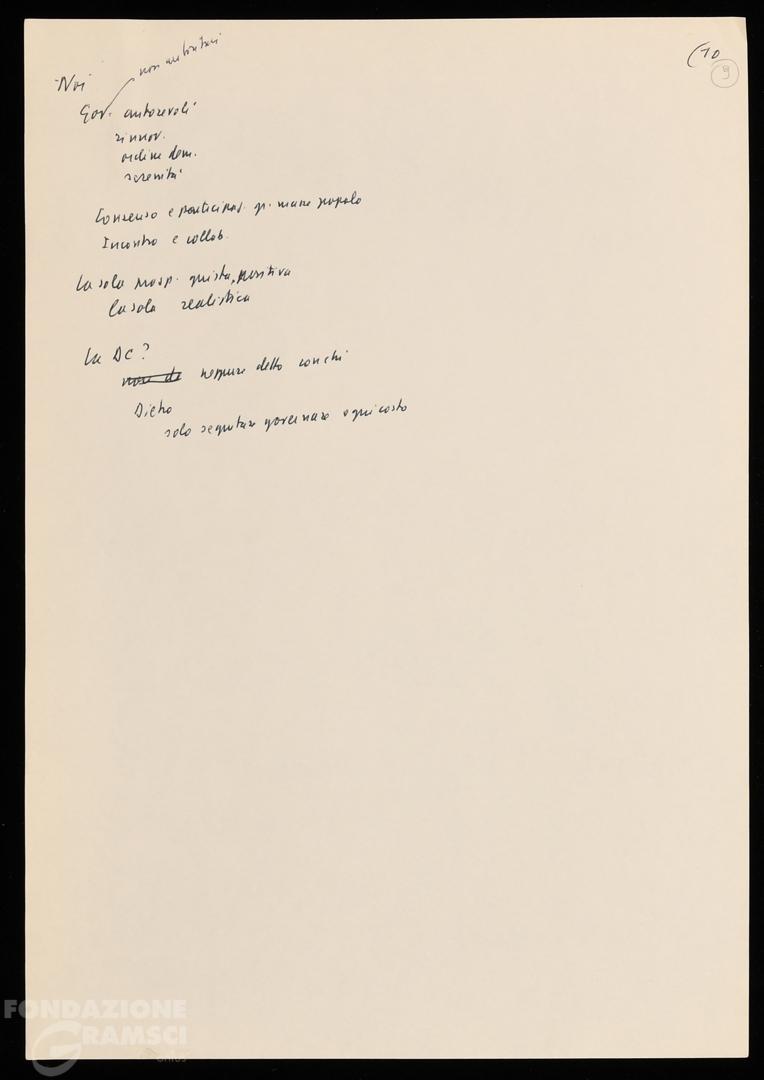 (10
9
Noi
non autoritari
Gov. autorevoli
rinnov.
ordine dem.
serenità
Consenso e participaz. gr. masse popolo
Incontro e collab.
La sola prosp. giusta, positiva
la sola realistica
La DC?
neppure detto con chi
Dietro
solo seguitare governare ogni costo
FONDAZIONE
GRAMSCI
onlus